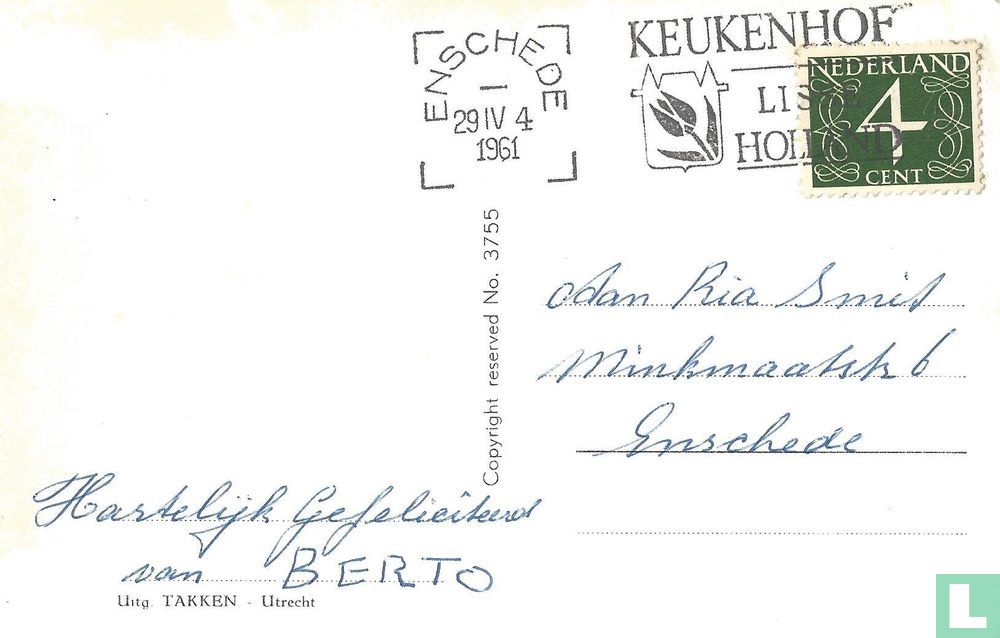 ENSCHEDE
29 IV 4
1961
KEUKENHOF
LISSE
HOLLAND
NEDERLAND
4
CENT
Copyright reserved No. 3755
Aan Ria Smit
Minkmaatstr 6
Enschede
Hartelijk Gefeliciteerd
van BERTO
Uitg. TAKKEN - Utrecht
L